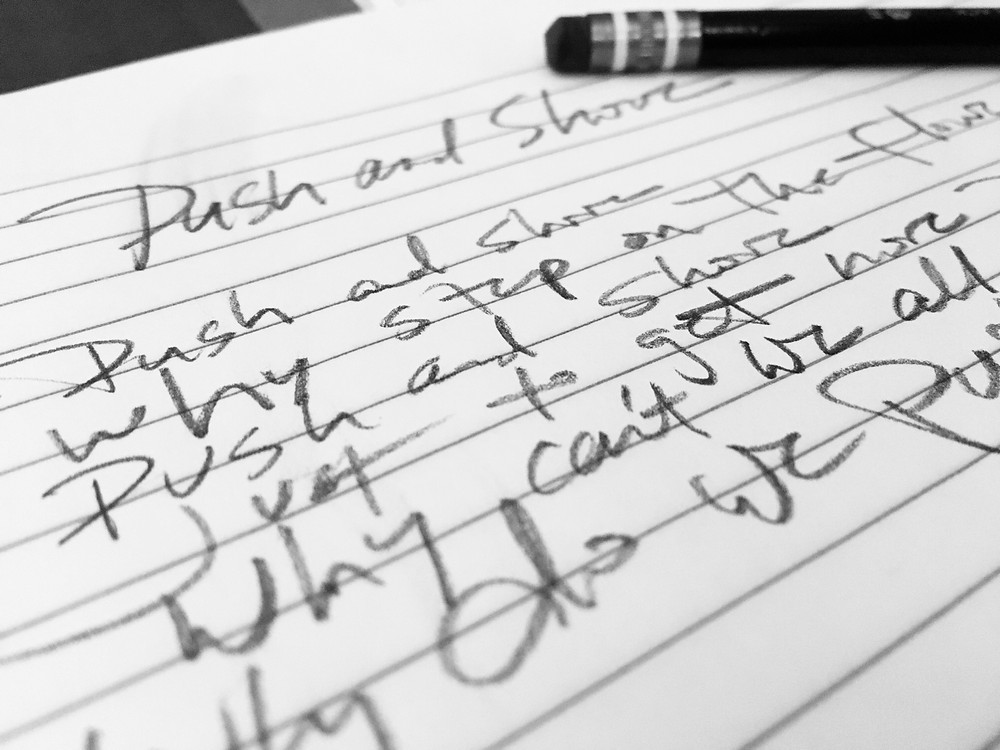 Push and Shove
Push and shove
why step on the floor
Push and shove
Just to get more
Why can't we all
Why do we